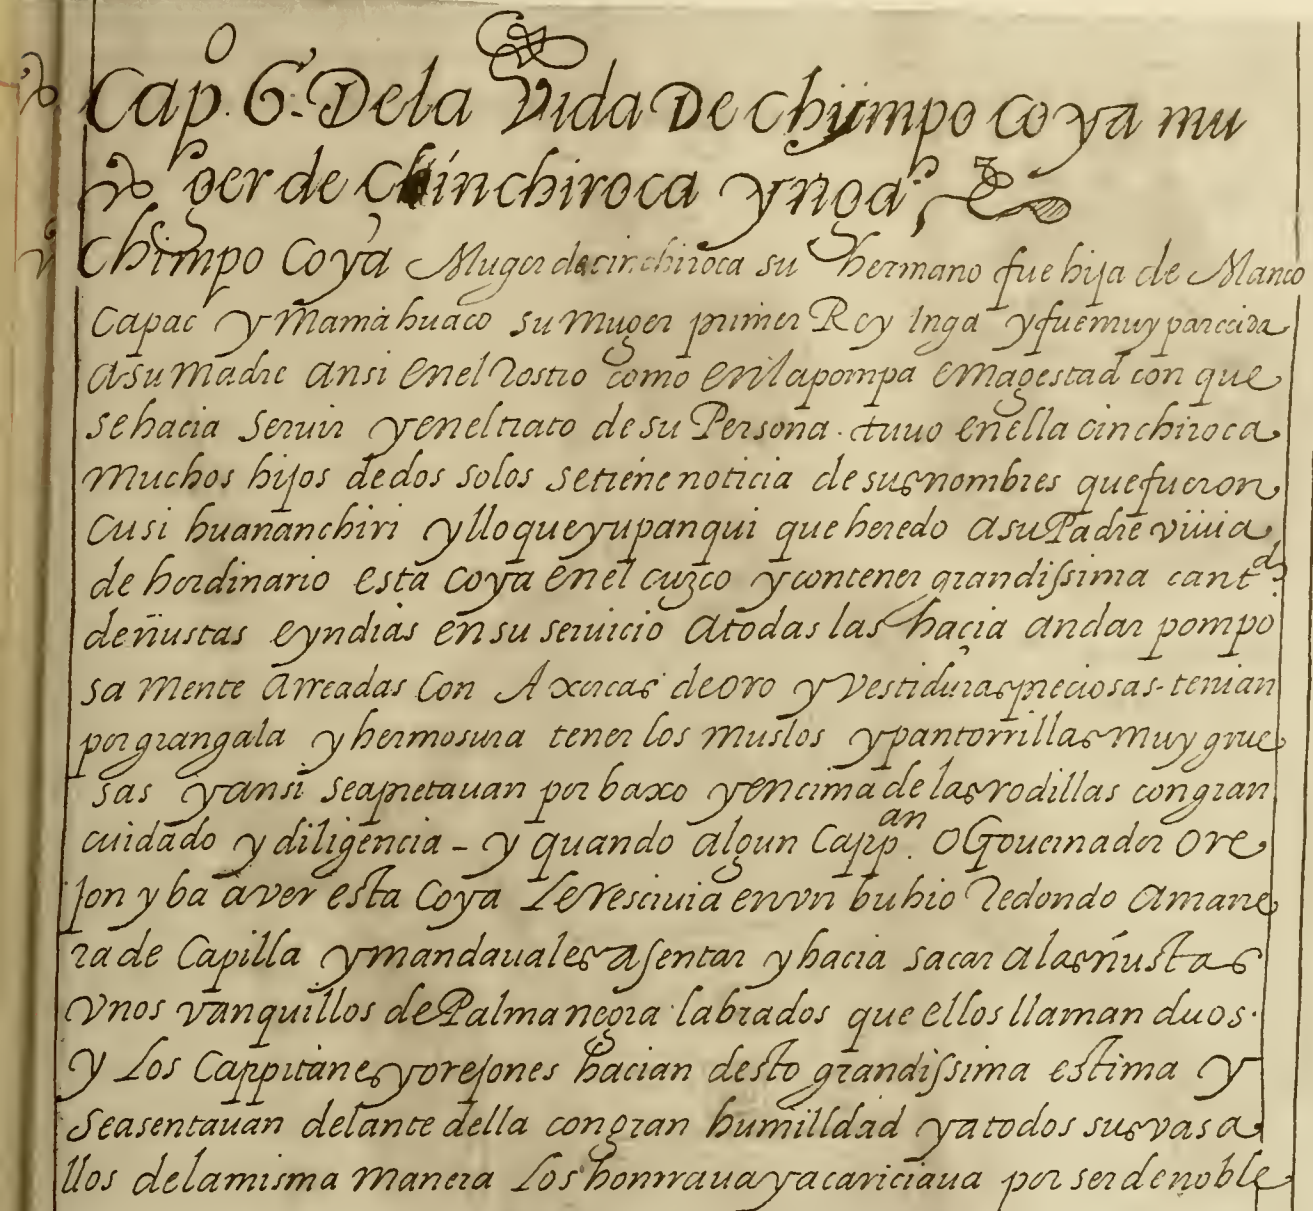 Cap. 6º. De la Vida De Chympo Coya mu
ger de Chinchiroca ynga.
Chimpo Coya Muger de cinchiroca su hermano fue hija de Manco
Capac y Mama huaco su muger primer Rey Inga y fue muy parecida
a su Madre ansi en el Rostro como en la pompa e magestad con que
se hacia seruir y en el trato de su Persona. tuuo en ella cinchiroca
muchos hijos de dos solos se tiene noticia de sus nombres que fueron
Cusi huananchiri y lloque yupanqui que heredo a su Padre viuia
de hordinario esta Coya en el cuzco y con tener grandissima cantd.
de ñustas e yndias en su seruicio a todas las haçia andar pompo
sa mente arreadas con Axorcas de oro y vestiduras preciosas. tenian
por gran gala y hermosura tener los muslos y pantorrillas muy grue
sas y ansi se apretauan por baxo y encima de las rodillas con gran
cuidado y diligencia - y quando algun Cappan. o Gouernador ore
jon yba a ver esta Coya le resciuia en vn buhio Redondo a mane
ra de Capilla y mandauales asentar y hacia sacar a las ñustas
vnos vanquillos de Palma negra labrados que ellos llaman duos.
y los Cappitanes y orejones hacian desto grandissima estima y
se asentauan delante della con gran humilldad y a todos sus vasa
llos de la misma manera los honrraua y acariciaua por ser de noble